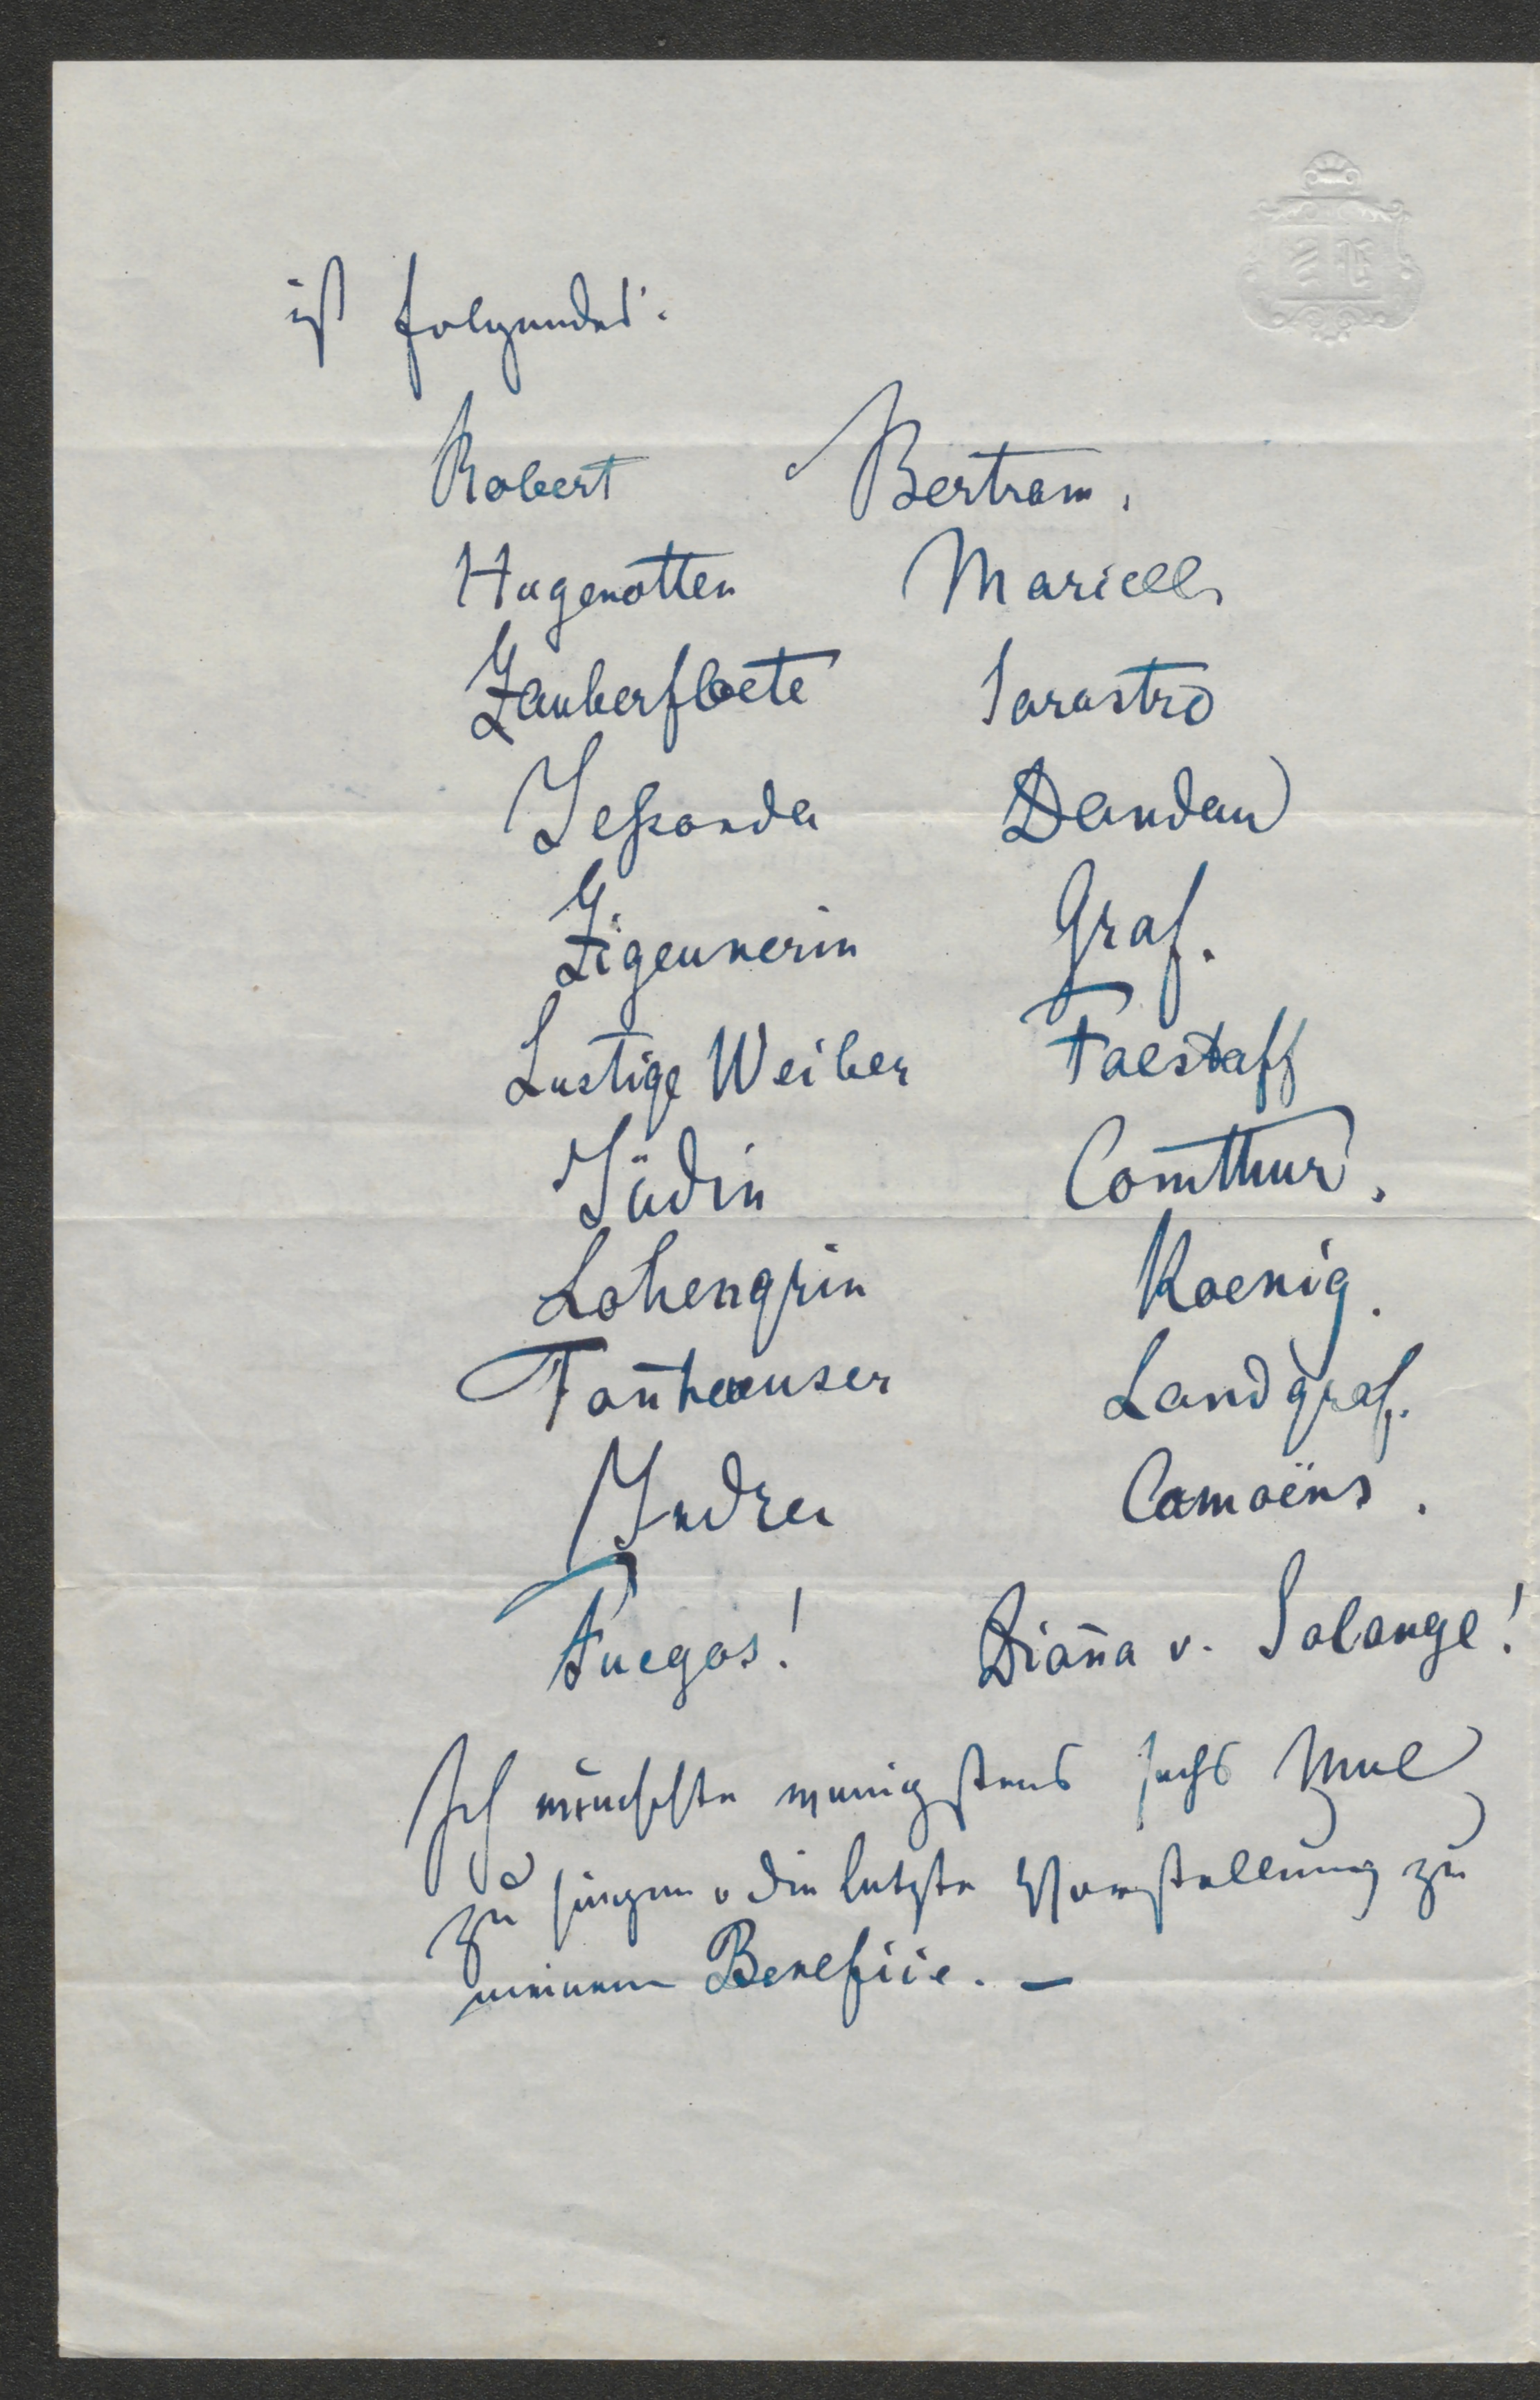 ist folgendes:
Robert Bertram.
Hugenotten Marcell
Zauberfloete Sarastro
Jeßonda Dandau
Zigeunerin Graf.
Lustige Weiber Falstaff
Jüdin Comthur.
Lohengrin Koenig.
Tañhaeuser Landgraf.
Indra Camoëns.
Fuegos! Diaña v. Solange!
Ich wünschte wenigstens sechs Mal
zu singen u die letzte Vorstellung zu
meinem Benefiiz. —